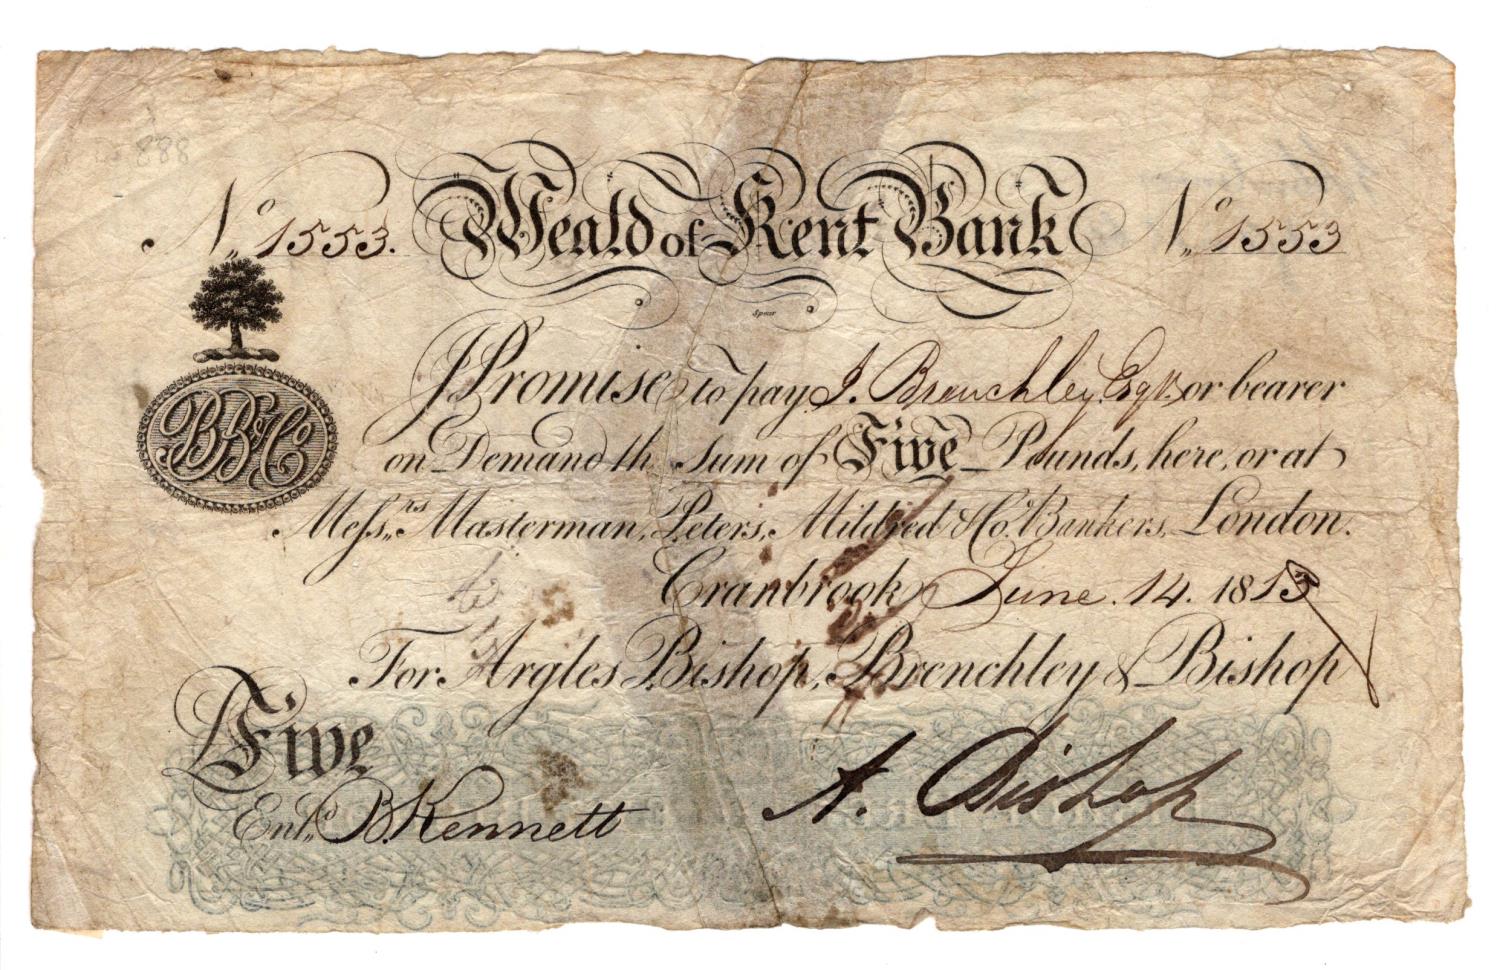 888
No. 1553. Weald of Kent Bank No. 1553
Spear
I Promise to pay J. Brenchley Esqr. or bearer
BB & Co
on Demand the Sum of Five Pounds, here, or at
Messrs. Masterman, Peters, Mildred & Co. Bankers, London.
Cranbrook June. 14. 1813
For Argles Bishop, Brenchley & Bishop
Five
Entd. B. Kennett
A. Bishop